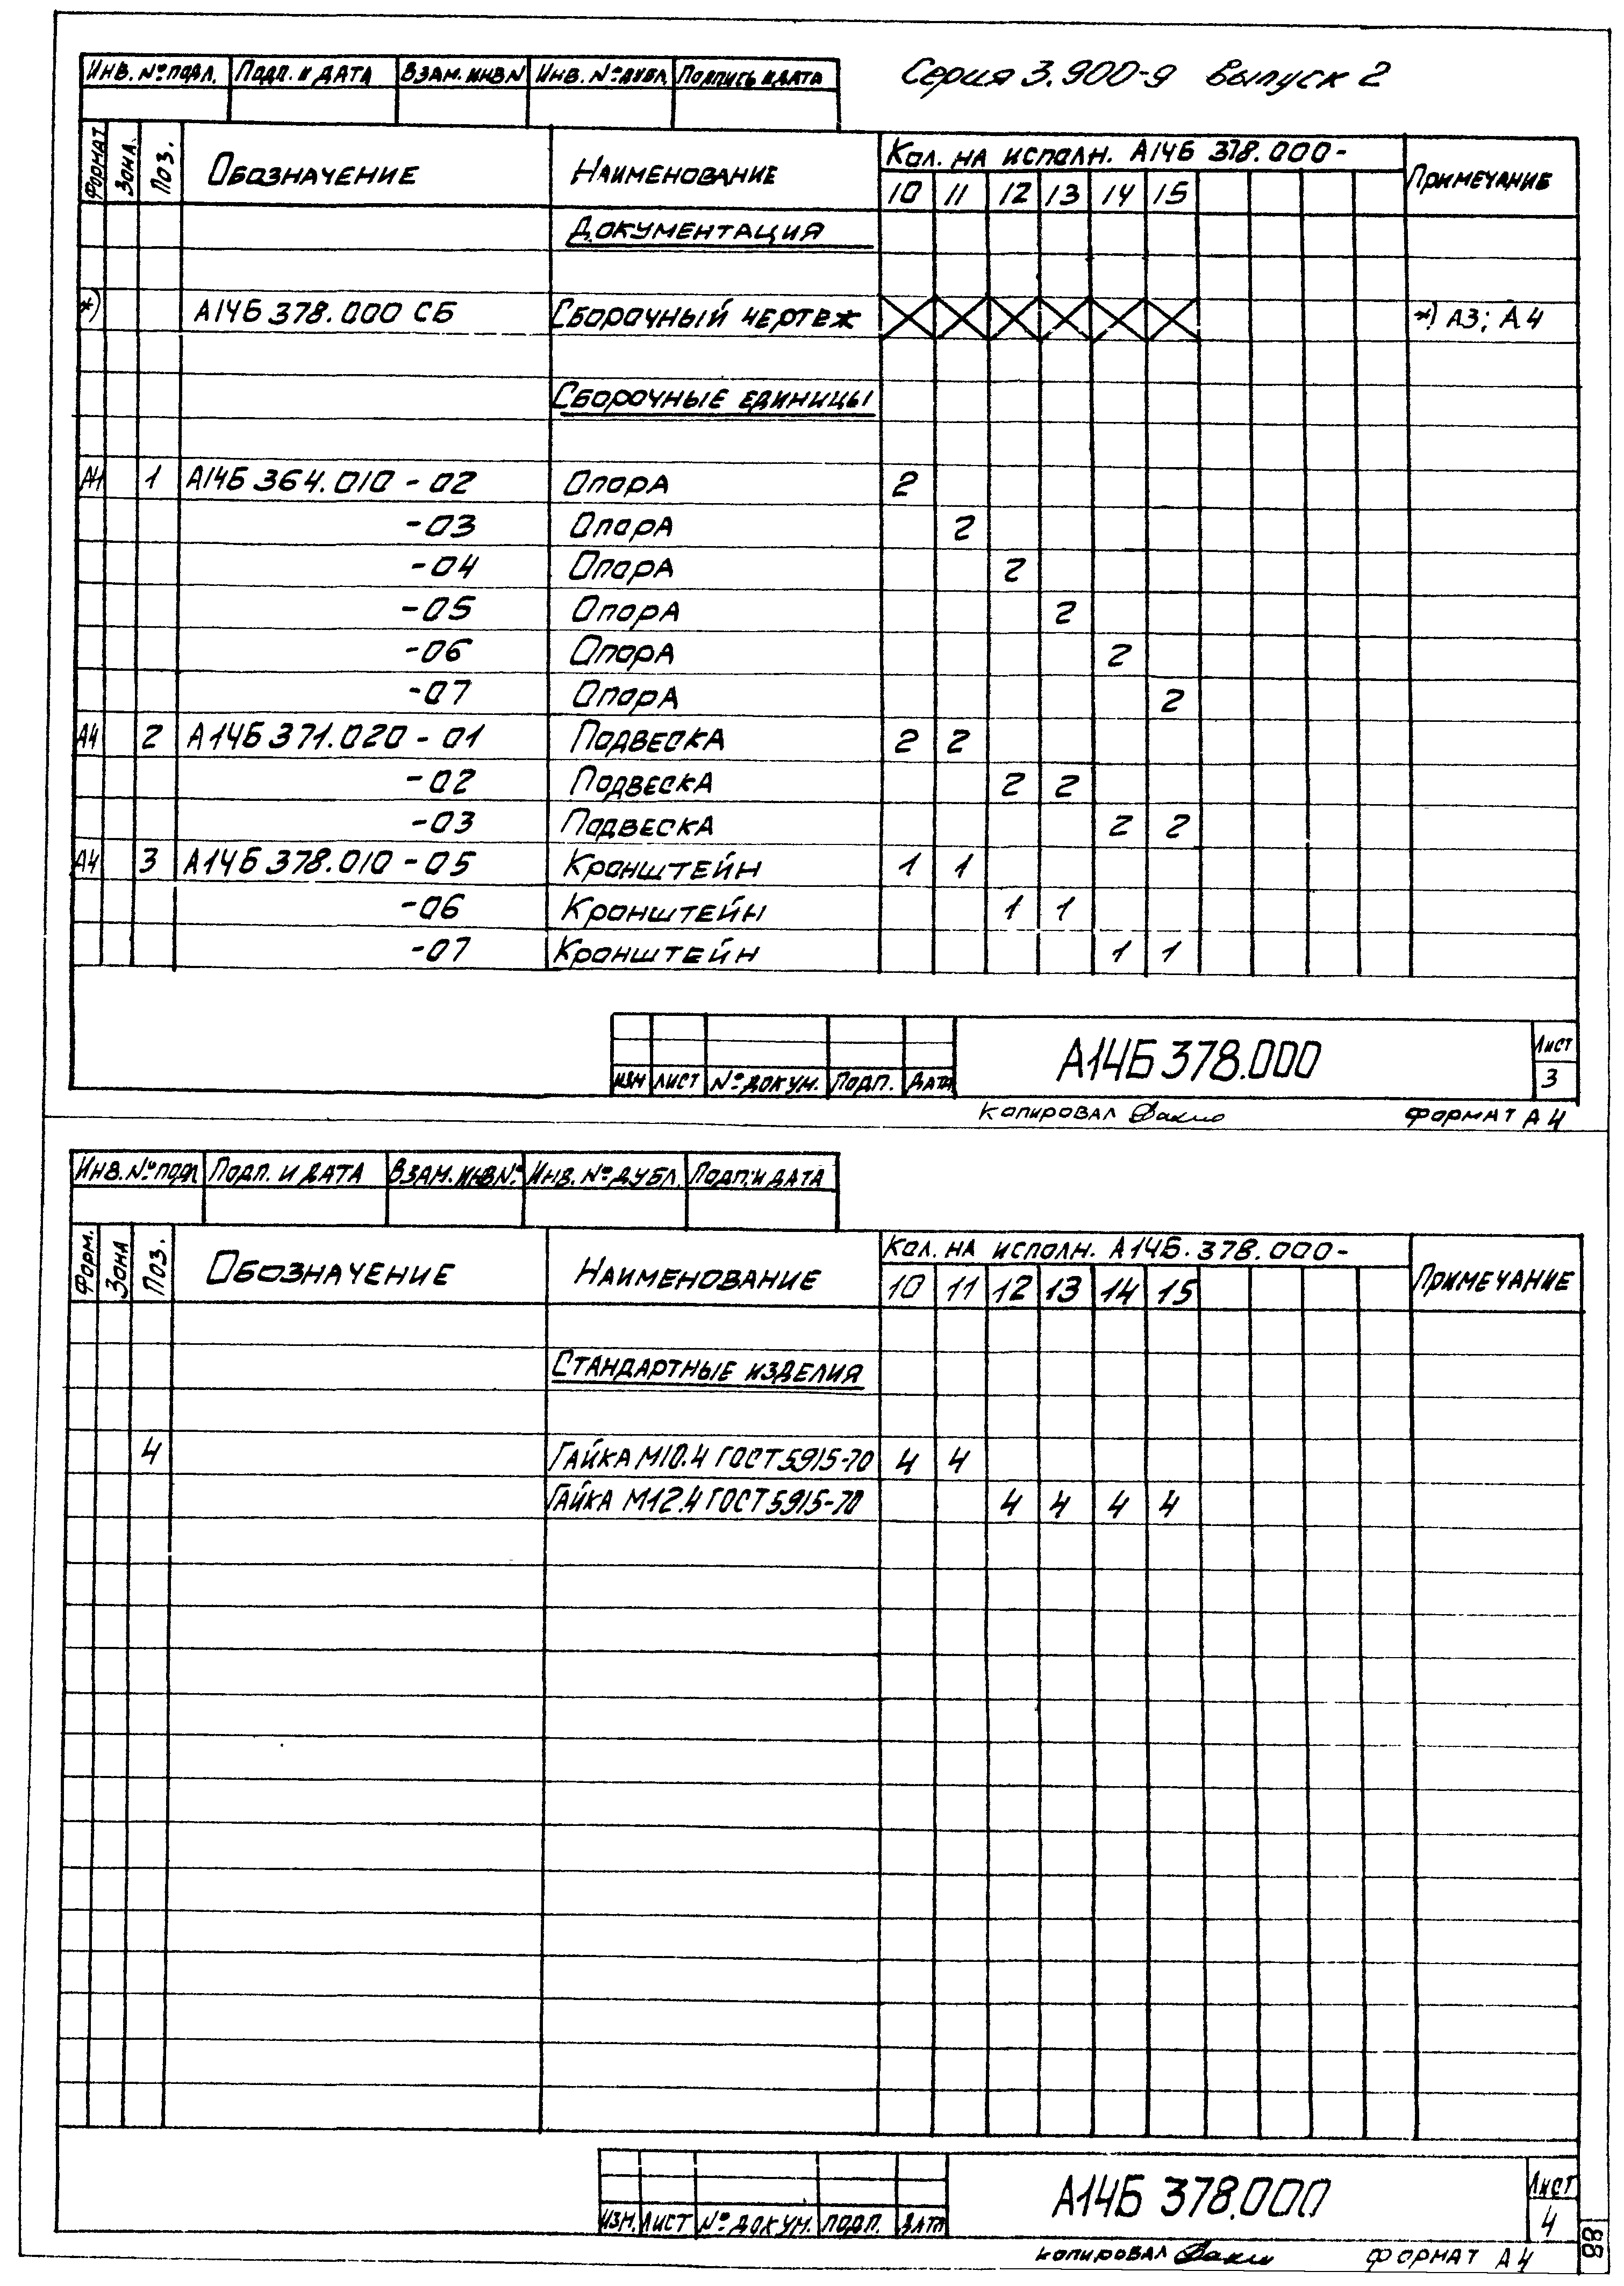 Серия 3.900-9 выпуск 2
Инв. № подл. Подп. и дата Взам. инв N Инв. № дубл. Подпись и дата
Формат Зона. Поз. Обозначение Наименование Кол. на исполн. А14Б 378.000- Примечание
10 11 12 13 14 15
Документация
*) А14Б 378.000 СБ Сборочный чертеж *) А3; А4
Сборочные единицы
А4 1 А14Б 364.010 - 02 Опора 2
-03 Опора 2
-04 Опора 2
-05 Опора 2
-06 Опора 2
-07 Опора 2
А4 2 А14Б 371.020 - 01 Подвеска 2 2
-02 Подвеска 2 2
-03 Подвеска 2 2
А4 3 А14Б 378.010 - 05 Кронштейн 1 1
-06 Кронштейн 1 1
-07 Кронштейн 1 1
Изм Лист № докум. Подп. Дата А14Б 378.000 Лист 3
Копировал Формат А4
Инв. № подл Подп. и дата Взам. инв №. Инв. № дубл. Подп. и дата
Форм. Зона Поз. Обозначение Наименование Кол. на исполн. А14Б. 378.000- Примечание
10 11 12 13 14 15
Стандартные изделия
4 Гайка М10.4 ГОСТ 5915-70 4 4
Гайка М12.4 ГОСТ 5915-70 4 4 4 4
Изм. Лист № докум. Подп. Дата А14Б 378.000 Лист 4
Копировал Формат А4
88